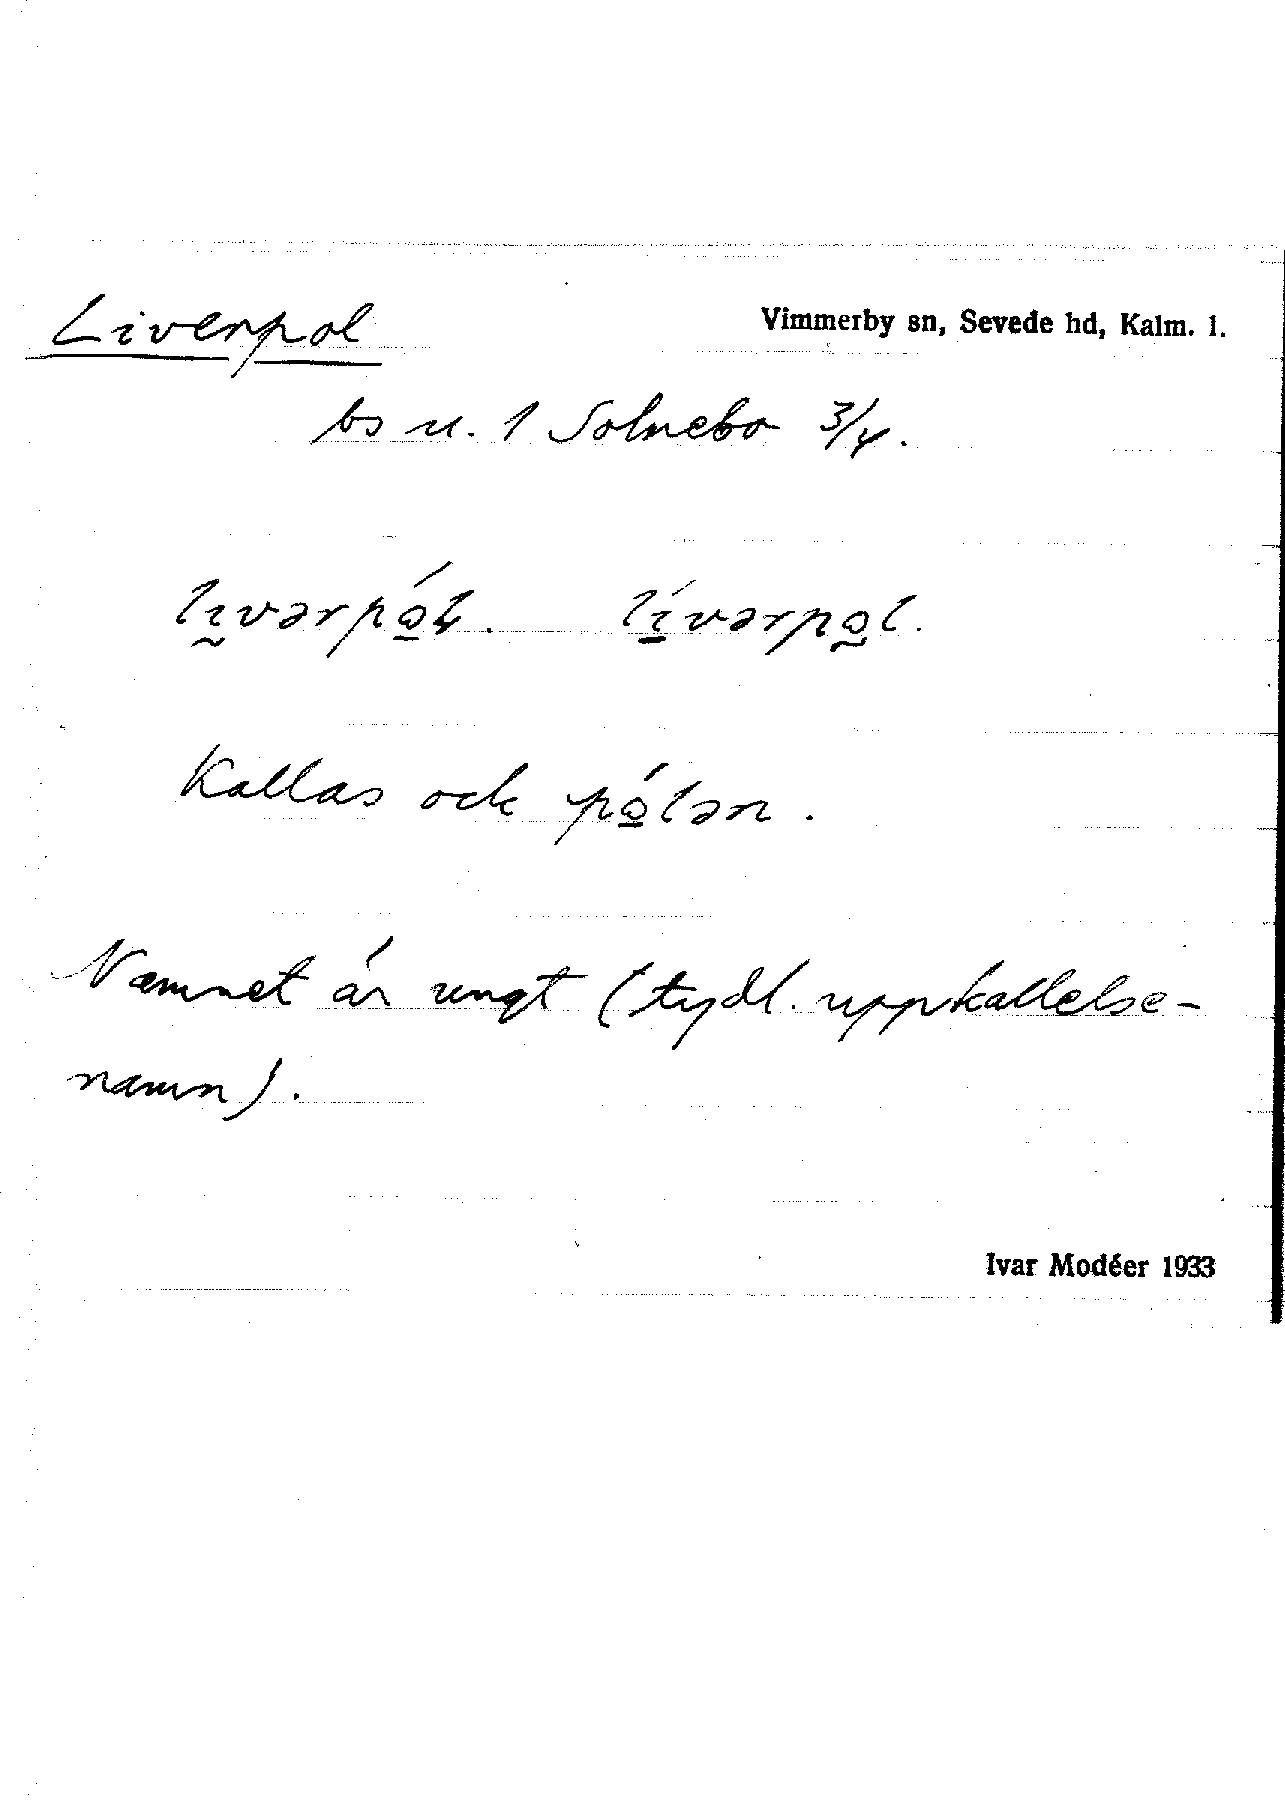 Liverpol
Vimmerby sn, Sevede hd, Kalm. l.
bs u. 1 Solnebo 3/4.
lı̰vərpó̱ɫ. lí̱vərpo̰l.
Kallas ock pó̱lən.
Namnet är ungt (tydl. uppkallelse-
namn).
Ivar Modéer 1933